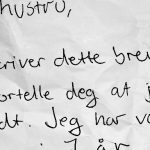 hustru,
river dette brev
ortelle deg at j
dt. Jeg har va
i 7 år